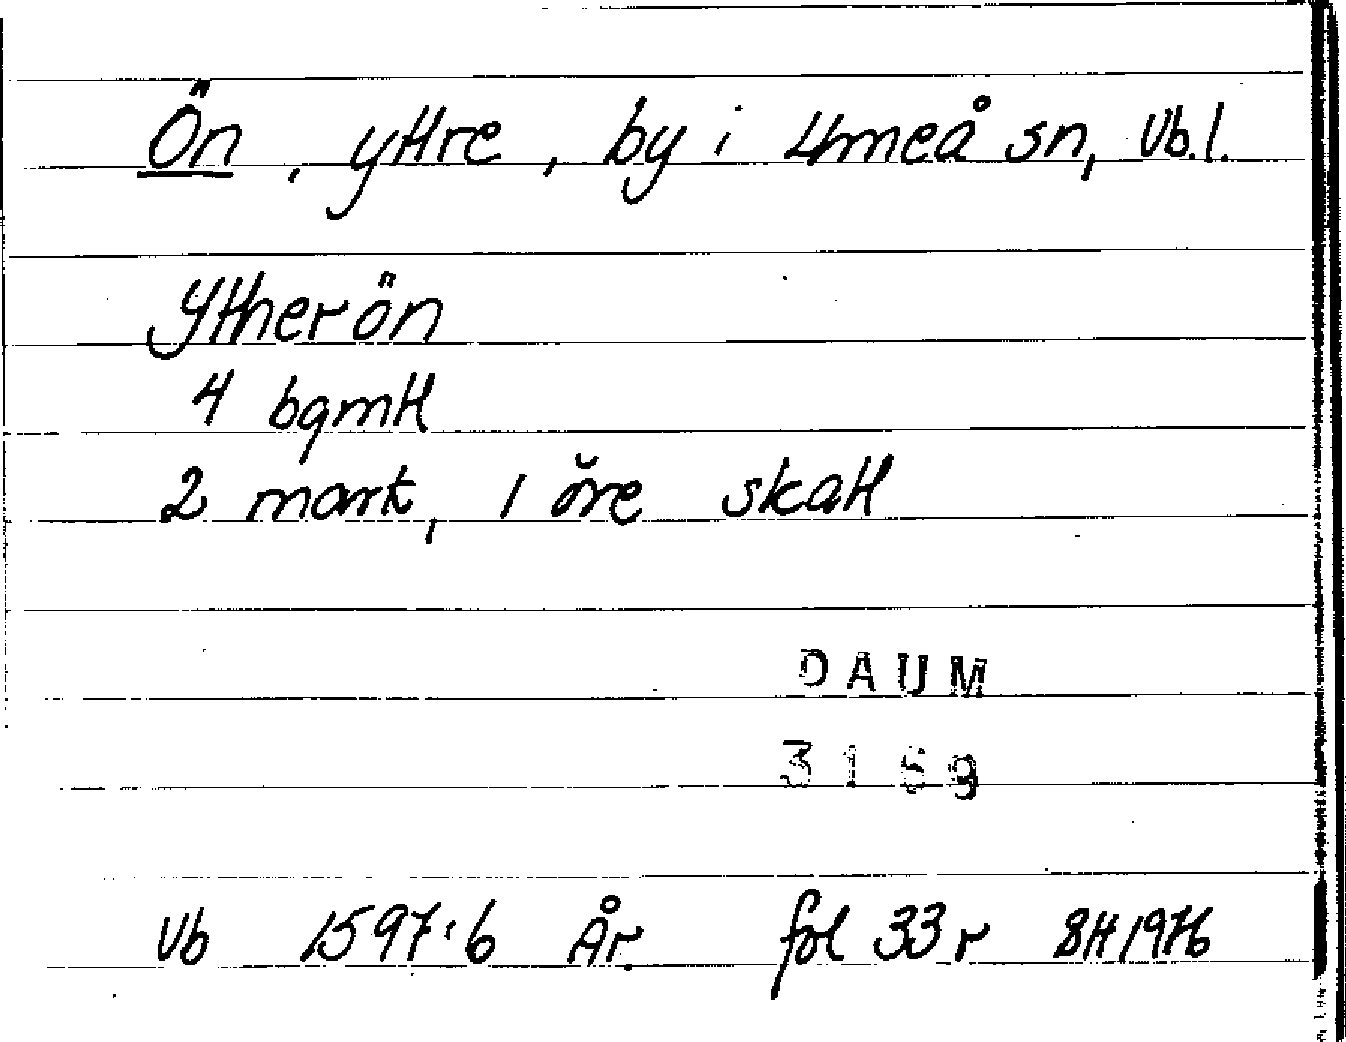 Ön, yttre, by i Umeå sn, Vb.l.
Ytherön
4 bgmtl
2 mark, 1 öre skatt
DAUM
3159
Vb 1597:6 År. fol 33r SH 1976